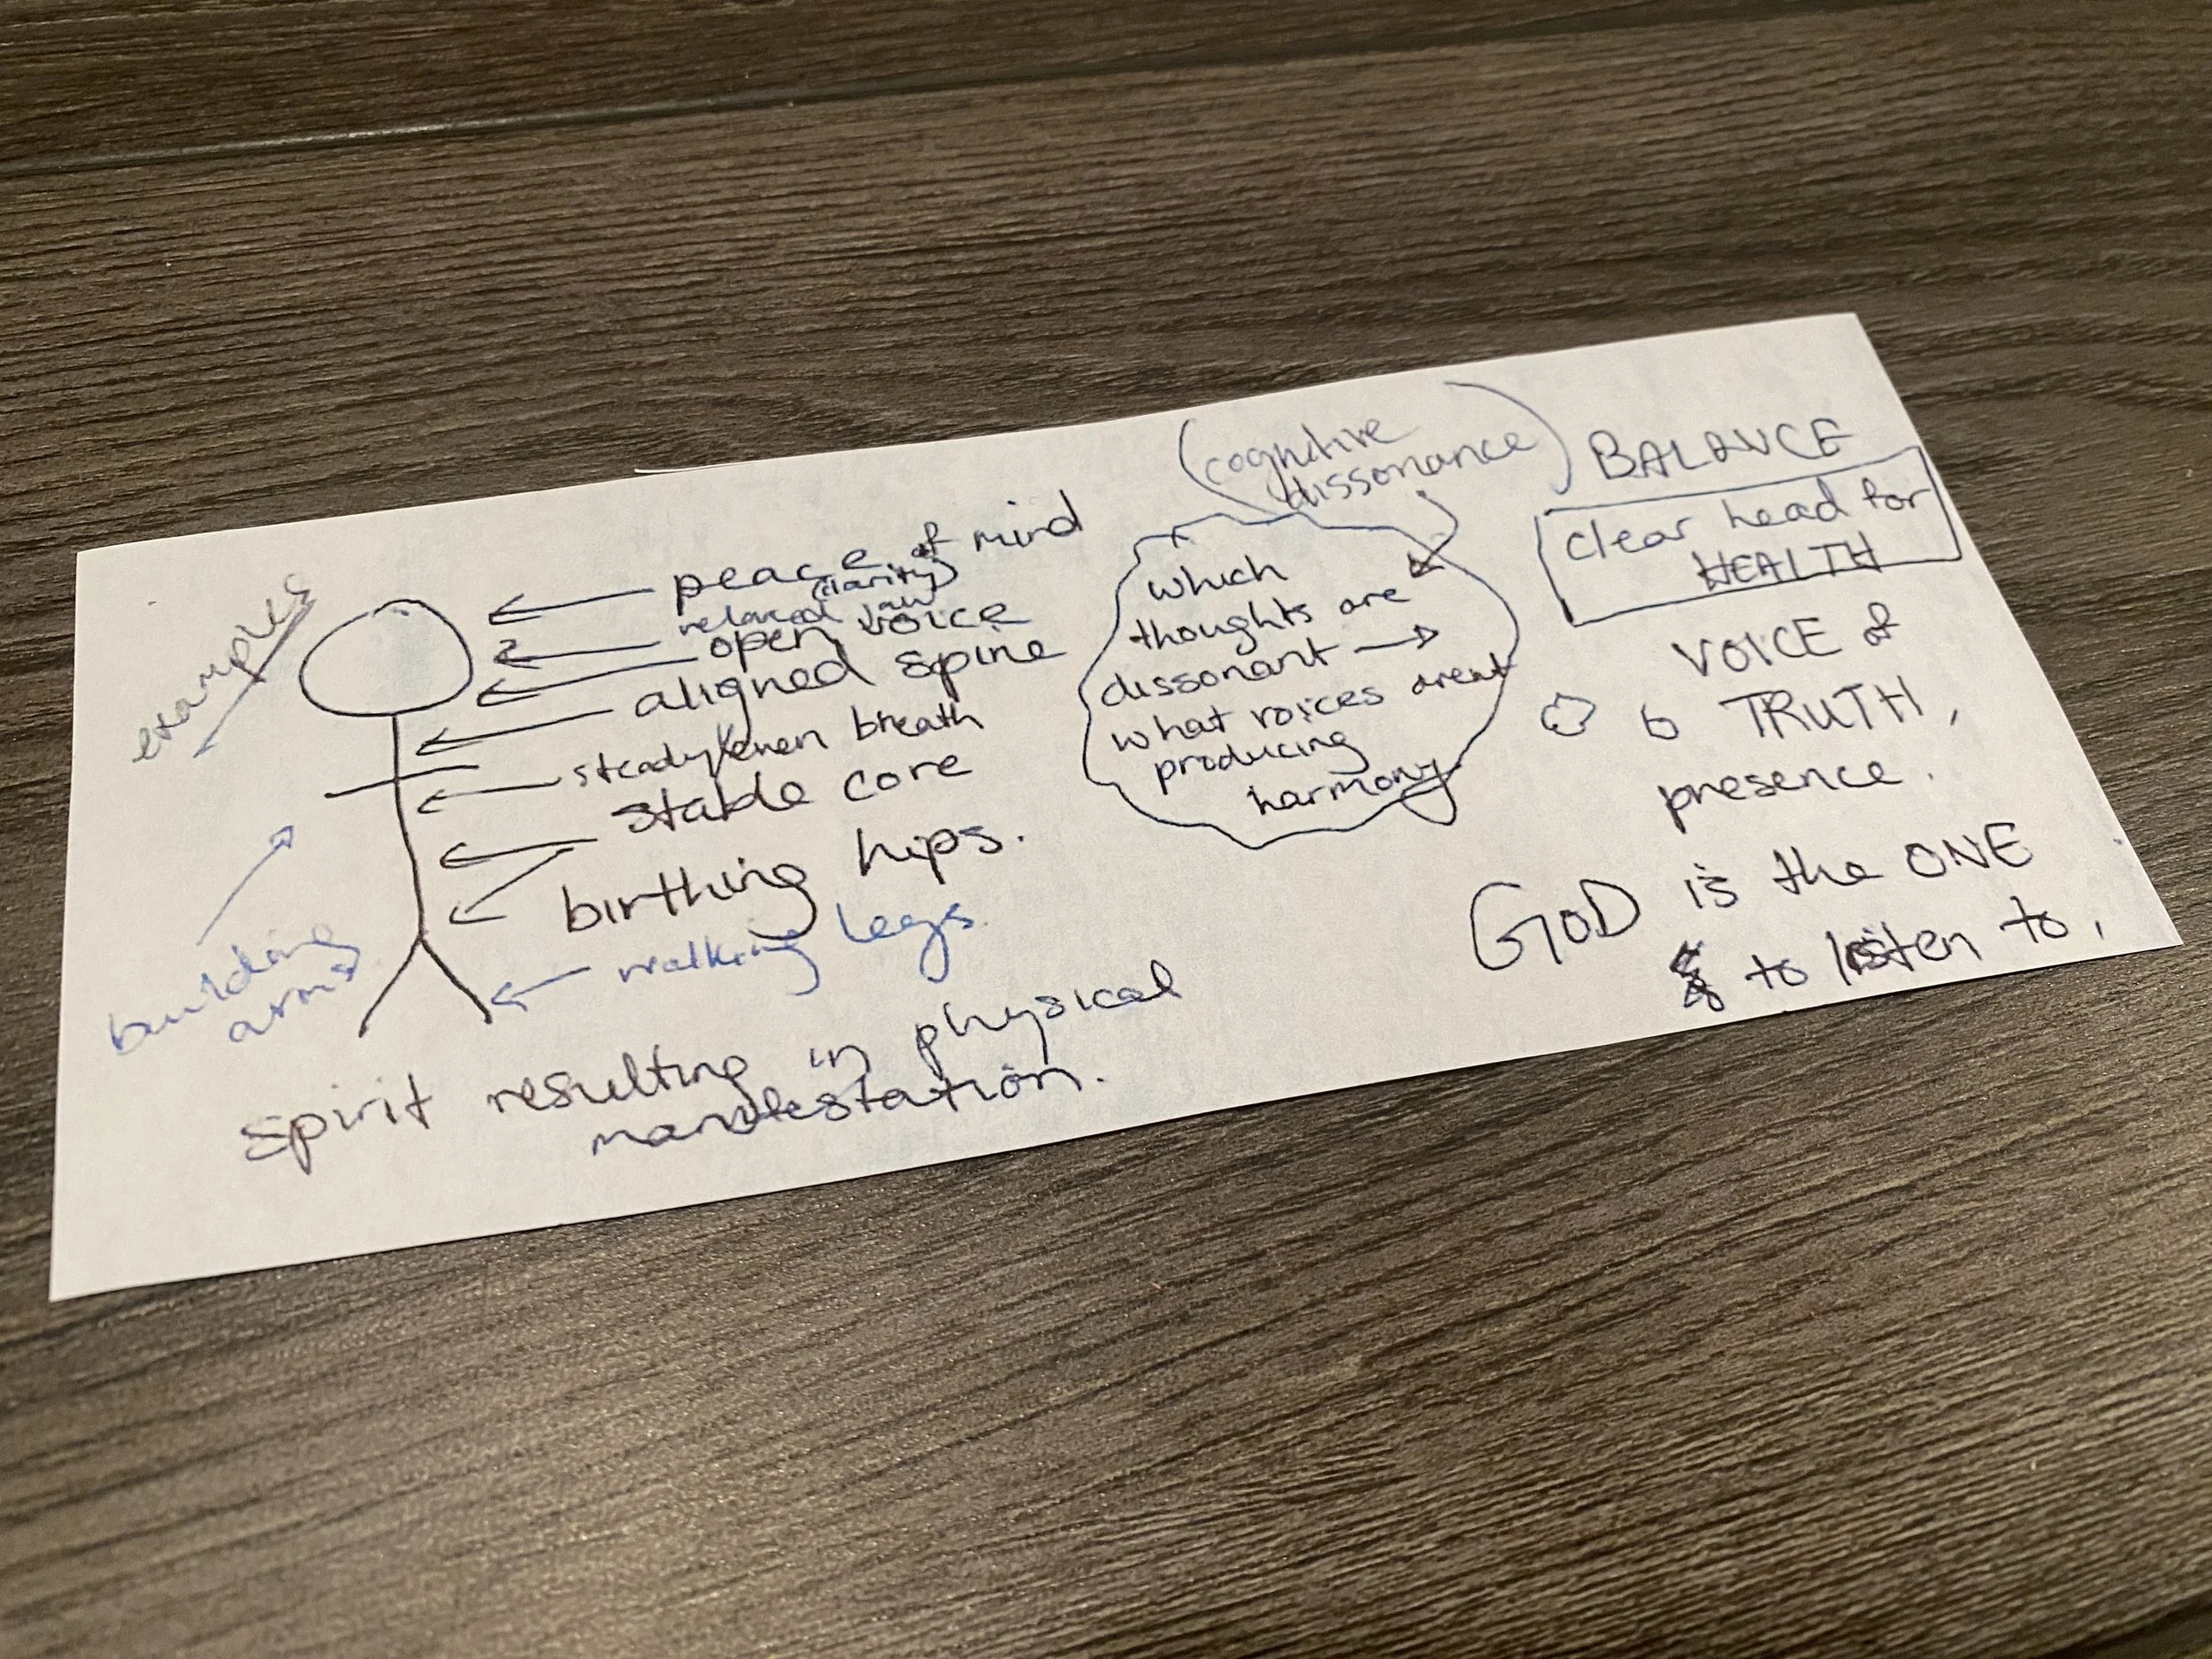 examples
peace of mind
(clarity)
relaxed jaw
open voice
aligned spine
steady/even breath
stable core
birthing hips.
walking legs.
building
arms
spirit resulting in physical
manifestation.
(cognitive
dissonance)
which
thoughts are
dissonant →
what voices arent
producing
harmony
BALANCE
clear head for
HEALTH
VOICE of
TRUTH,
presence.
GOD is the ONE
to listen to,